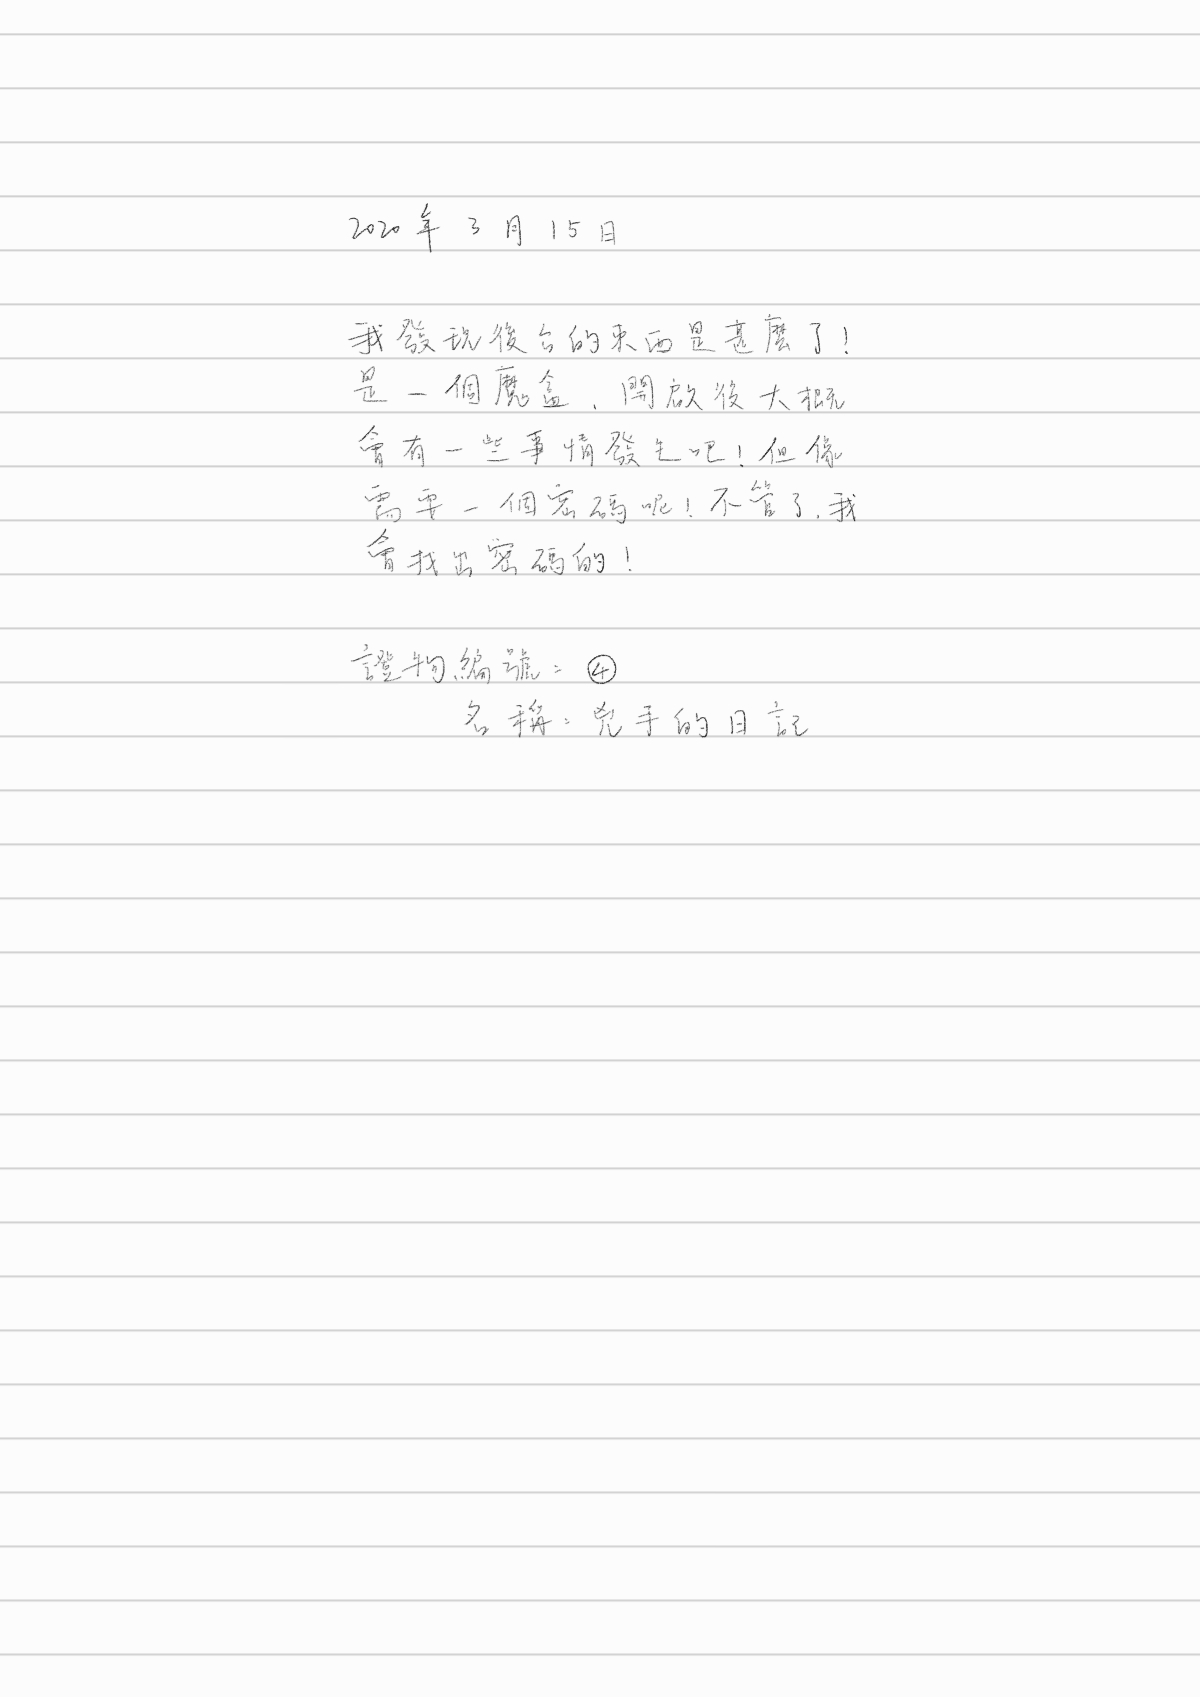 2020年3月15日
我發現後台的東西是甚麼了!
是一個魔盒,開啟後大概
會有一些事情發生吧!但像
需要一個密碼呢!不管了,我
會找出密碼的!
證物編號:④
名稱:兇手的日記